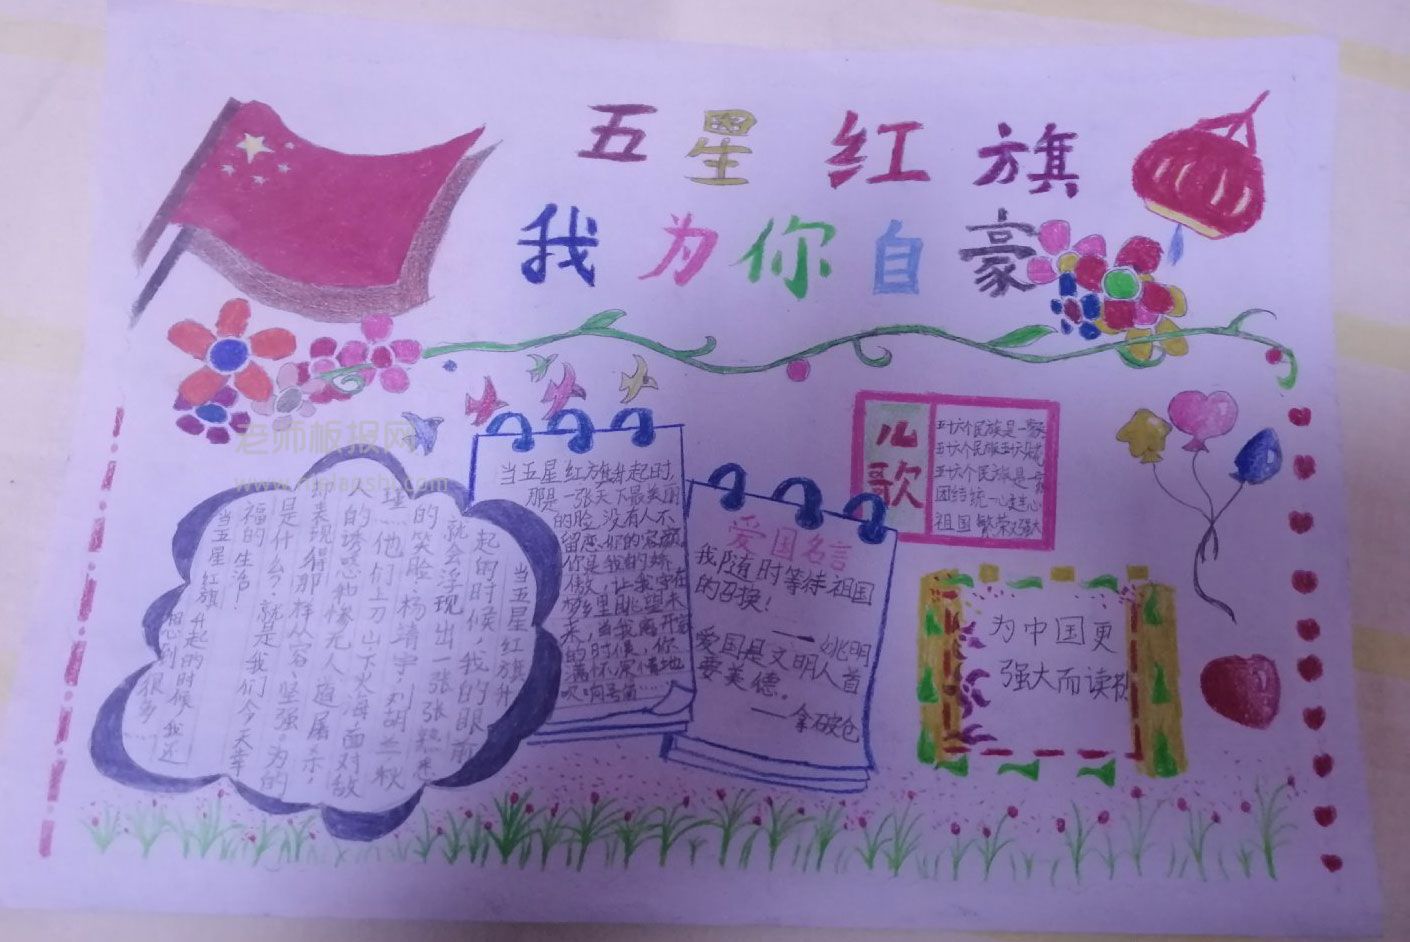 五星红旗
我为你自豪
老师板报网
当五星红旗升起时,
那是一张天下最美丽
的脸,没有人不
留恋你的容颜。
你是我的骄
傲,让我守在
里眺望未
来,当我离开
的时候,你
满怀深情地
吹响号角……
爱国名言
我随时等待祖国
的召换!
——姚明
爱国是文明人首
要美德。
——拿破仑
儿歌
五十六个民族是一家
五十六个民族五十六
五十六个民族是一家
团结统一心连心
祖国繁荣又强大
为中国更
强大而读书
当五星红旗升
起的时候,我的眼前
就会浮现出一张张熟悉
的笑脸,杨靖宇、刘胡兰、秋
瑾……他们上刀山下火海,面对敌
人的诱惑和惨无人道屠杀
却表现得那样从容、坚强,为的
是什么?就是我们今天幸
福的生活!
当五星红旗升起的时候,我还
想到很多……